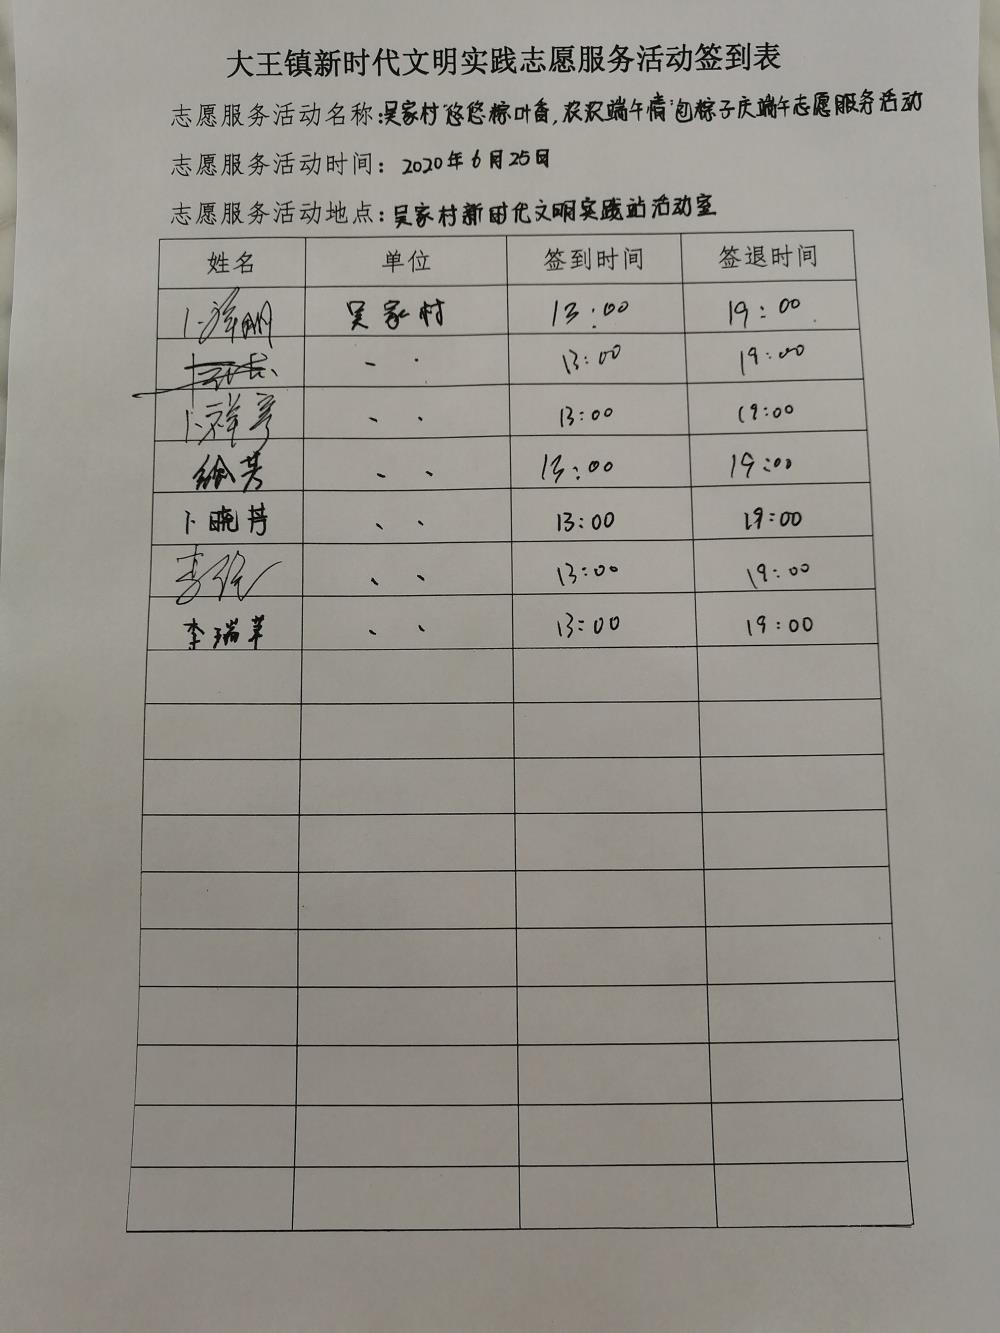 大王镇新时代文明实践志愿服务活动签到表
志愿服务活动名称:吴家村"悠悠粽叶香,农农端午情"包粽子庆端午志愿服务活动
志愿服务活动时间:2020年6月25日
志愿服务活动地点:吴家村新时代文明实践站活动室
姓名 单位 签到时间 签退时间
卜祥明 吴家村 13:00 19:00
13:00 19:00
卜祥彦 13:00 19:00
徐芳 13:00 19:00
卜晓芹 13:00 19:00
13:00 19:00
李瑞苹 13:00 19:00